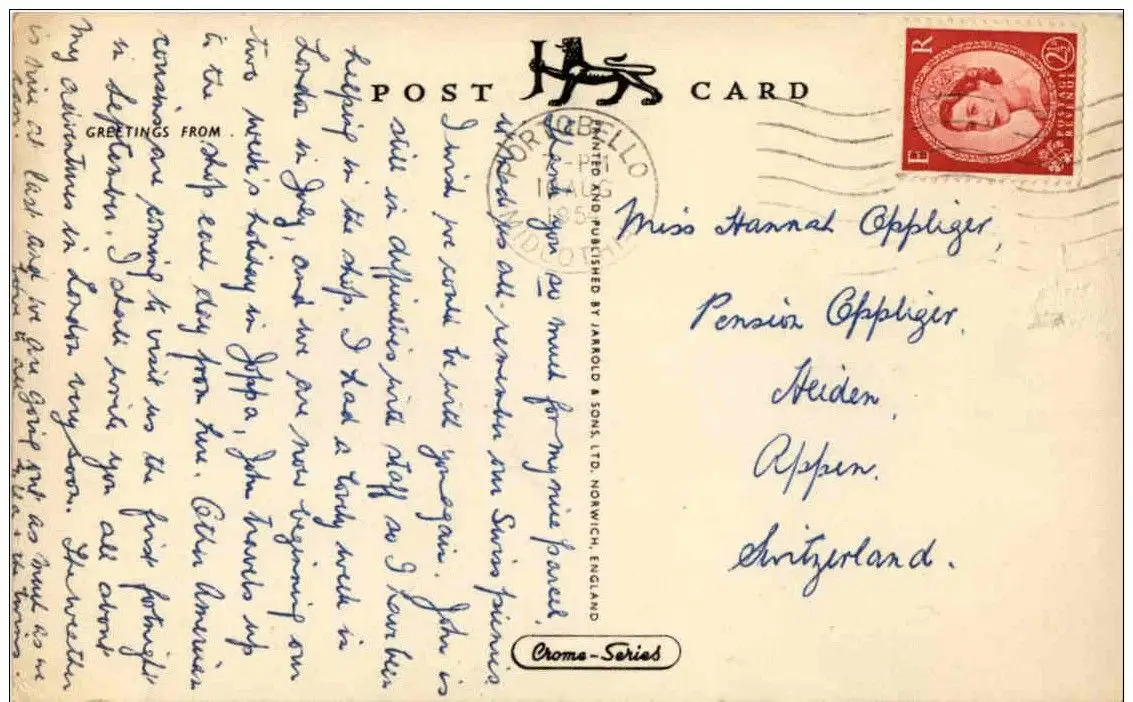 POST CARD
GREETINGS FROM
PORTOBELLO
7-PM
AUG
195
MIDLOTHI
E R
2½D
POSTAGE
REVENUE
PRINTED AND PUBLISHED BY JARROLD & SONS, LTD. NORWICH, ENGLAND
Miss Hannah Oppliger,
Pension Oppliger,
Heiden,
Appen,
Switzerland.
Thank you so much for my nice parcel.
us all - remember our Swiss friends
I wish we could be with you again. John is
still in difficulties with staff so I have been
helping in the shop. I had a lovely week in
London in July, and we are now beginning our
two week's holiday in Joppa, John travels up
to the shop each day from here. Other American
cousins are coming to visit us the first fortnight
in September. I shall write you all about
my adventures in London very soon. The weather
is nice at last and we are going out as much as we
can.
Love to all
& the twins.
Crome-Series